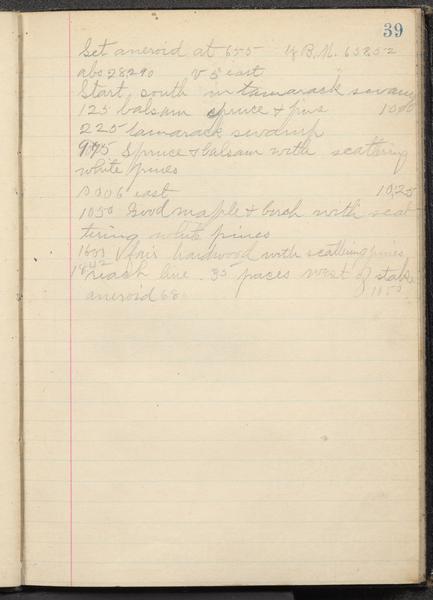 39
Set aneroid at 655 B.M. 658.52
abs 28.290 V 5 east
Start south in tamarack swamp
125 balsam spruce & pine 1000
225 tamarack swamp
975 Spruce & balsam with scattering
white pines
east 1025
1050 Good maple & birch with scat
tering white pines
1600 fair hardwood with scattering pines
1842 reach line 35 paces west of stake
aneroid 68 1050